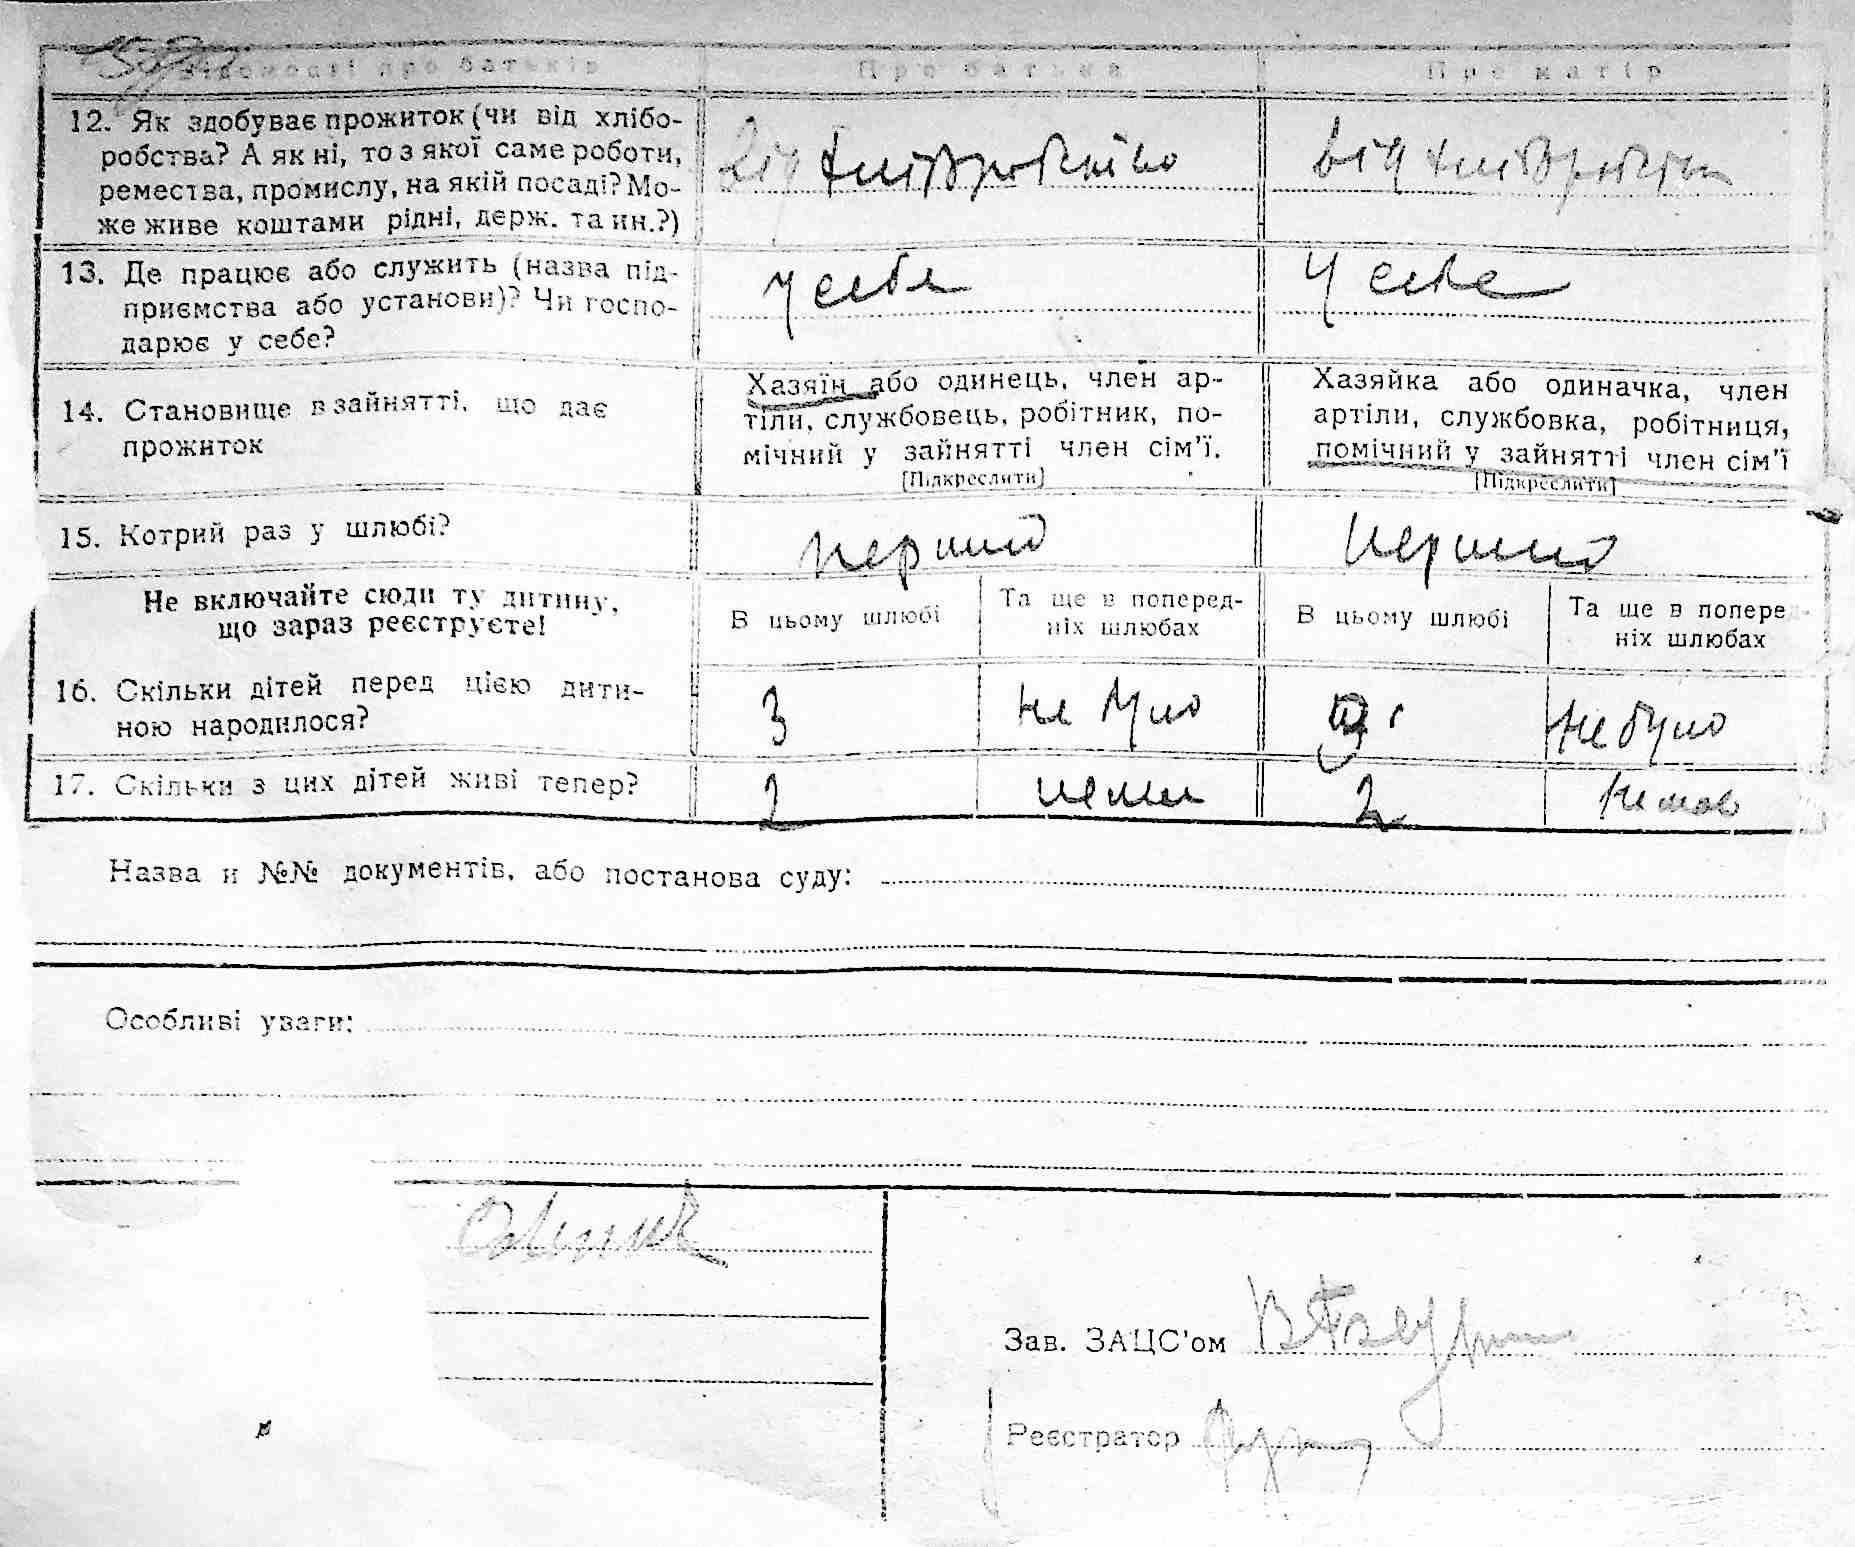 Відомості про батьків
Про батька
Про матір
12. Як здобуває прожиток (чи від хлібо-
робства? А як ні, то з якої саме роботи,
ремества, промислу, на якій посаді? Мо-
же живе коштами рідні, держ. та ин.?)
від
від
13. Де працює або служить (назва під-
приємства або установи)? Чи госпо-
дарює у себе?
у себе
у себе
14. Становище в зайнятті, що дає
прожиток
Хазяїн або одинець, член ар-
тіли, службовець, робітник, по-
мічний у зайнятті член сім'ї.
[Підкреслити]
Хазяйка або одиначка, член
артіли, службовка, робітниця,
помічний у зайнятті член сім'ї
[Підкреслити]
15. Котрий раз у шлюбі?
перший
перший
Не включайте сюди ту дитину,
що зараз реєструєте!
В цьому шлюбі
Та ще в поперед-
ніх шлюбах
В цьому шлюбі
Та ще в поперед-
ніх шлюбах
16. Скільки дітей перед цією дити-
ною народилося?
3
не було
3
не було
17. Скільки з цих дітей живі тепер?
2
немає
2
немає
Назва й №№ документів, або постанова суду:
Особливі уваги:
Зав. ЗАЦС'ом
Реєстратор